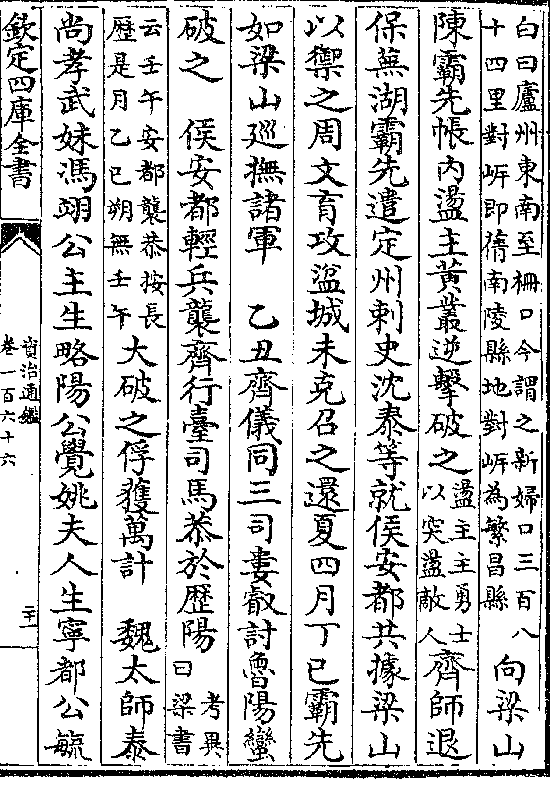 白曰廬州東南至柵口今謂之新婦口三百八
十四里對岍即舊南陵縣地對岍為繁昌縣
向梁山
陳霸先帳內盪主黃叢逆擊破之
盪主主勇士
以突盪敵人
齊師退
保蕪湖霸先遣定州刺史沈泰等就侯安都共據梁山
以禦之周文育攻湓城未克召之還夏四月丁巳霸先
如梁山巡撫諸軍　乙丑齊儀同三司婁叡討魯陽蠻
破之　侯安都輕兵襲齊行臺司馬恭於歷陽
考異
曰梁書
云壬午安都襲恭按長
歷是月乙巳朔無壬午
大破之俘獲萬計　魏太師泰
尚孝武妹馮翊公主生略陽公覺姚夫人生寧都公毓
欽定四庫全書
資治通鑑
卷一百六十六
二十二